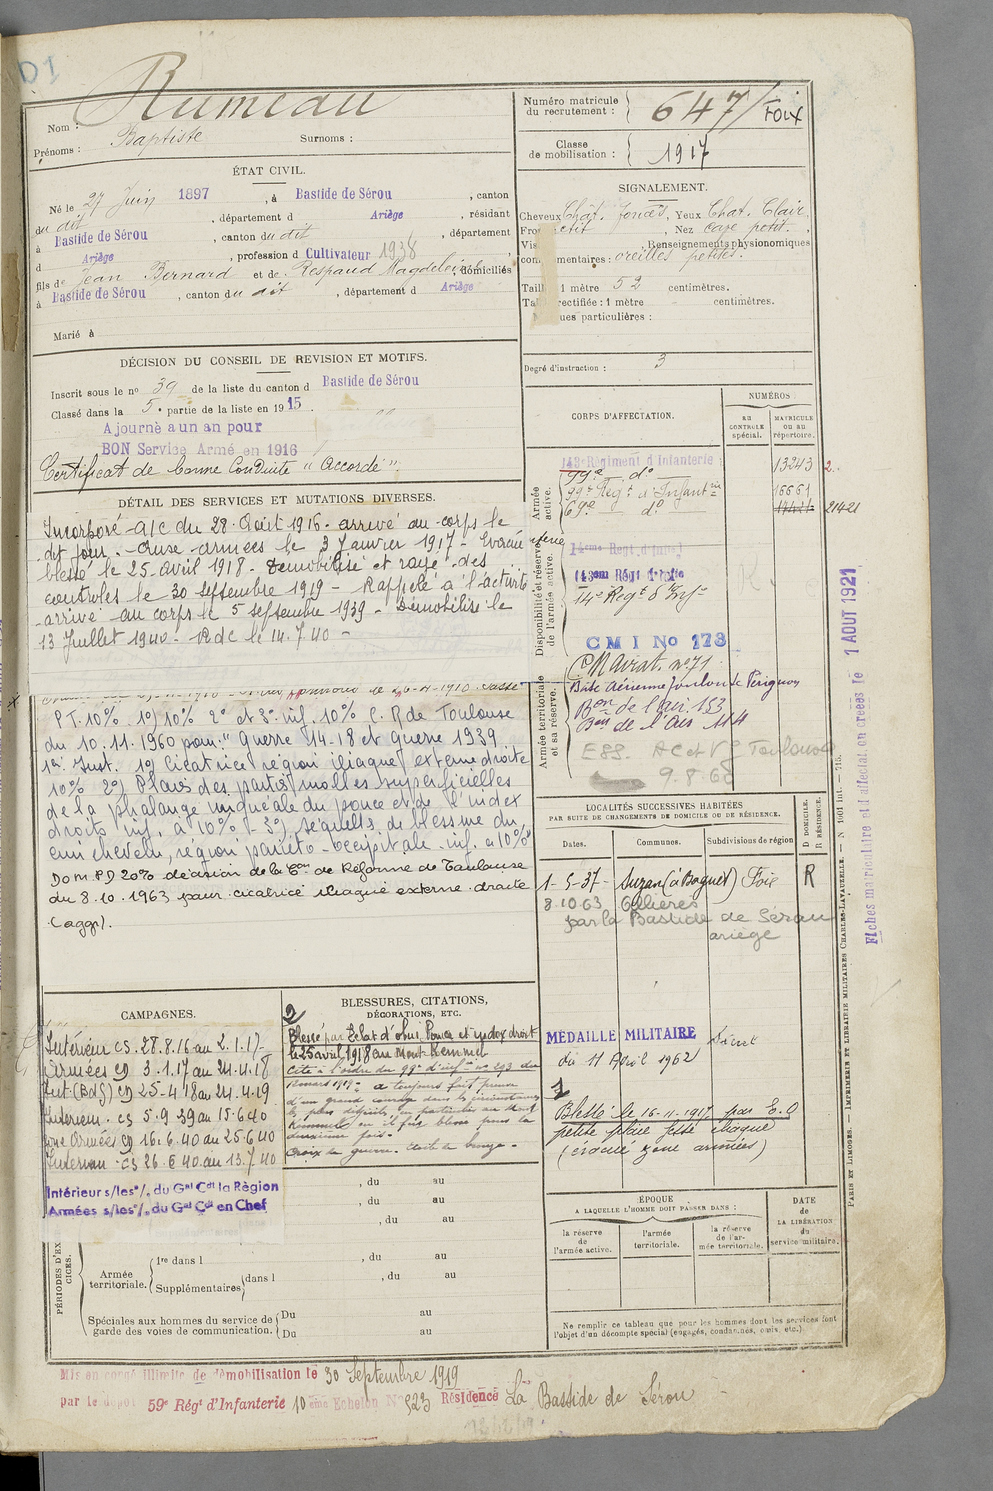 Rumeau
Nom :
Prénoms : Baptiste Surnoms :
ÉTAT CIVIL.
Né le 27 Juin 1897, à Bastide de Sérou, canton
du dit, département d Ariège, résidant
à Bastide de Sérou, canton du dit, département
d Ariège, profession d Cultivateur 1938
fils de Jean Bernard et de Respaud Magdeleine domiciliés
à Bastide de Sérou, canton du dit, département d Ariège
Marié à
DÉCISION DU CONSEIL DE REVISION ET MOTIFS.
Inscrit sous le no 39 de la liste du canton d Bastide de Sérou
Classé dans la 5e partie de la liste en 1915.
Ajourné à un an pour
BON Service Armé en 1916
Certificat de bonne Conduite "Accordé".
DÉTAIL DES SERVICES ET MUTATIONS DIVERSES.
Incorporé a/c du 28 Août 1916 - arrivé au corps le
dit jour. - Aux armées le 3 Janvier 1917 - Evacué
blessé le 25 avril 1918 - Démobilisé et rayé des
contrôles le 30 septembre 1919 - Rappelé à l'activité
arrivé au corps le 5 septembre 1939 - Démobilisé le
13 Juillet 1940 - Rdc le 14.7.40 -
PT. 10% 1°) 10% 2° et 3° inf. 10% C. R de Toulouse
du 10.11.1960 pour "Guerre 14-18 et Guerre 1939
1°) Cicatrice région iliaque externe droite
10% 2°) Plaies des parties molles superficielles
de la phalange unguéale du pouce et de l'index
droits inf. à 10% - 3°) séquelles de blessure du
cuir chevelu, région pariéto-occipitale inf. à 10%"
Dom PD 20% décision de la Con de Réforme de Toulouse
du 8.10.1963 pour cicatrice iliaque externe droite
(aggr).
CAMPAGNES.
Intérieur CS. 28.8.16 au 2.1.17
Armées CD 3.1.17 au 24.4.18
Int (BdG) CD 25-4-18 au 24.4.19
Intérieur CS 5.9.39 au 15.6.40
Zone Armées CD 16.6.40 au 25.6.40
Intérieur CS 26.6.40 au 13.7.40
Intérieur s/les o/. du Gal Cdt la Région
Armées s/les o/. du Gal Cdt en Chef
BLESSURES, CITATIONS,
DÉCORATIONS, ETC.
2
Blessé par Eclat d'obus Pouce et index droit
le 25 avril 1918 au Mont Kemmel
Cité à l'ordre du 99e d'infie no 203 du
a toujours fait preuve
d'un grand courage dans les circonstances
les plus difficiles, en particulier au Mont
Kemmel où il fut blessé pour la
deuxième fois.
Croix de guerre. Étoile de bronze.
, du au
, du au
, du au
PÉRIODES D'EXERCICES.
Armée territoriale.
1re dans l , du au
Supplémentaires dans l , du au
Spéciales aux hommes du service de garde des voies de communication.
Du au
Du au
Mis en congé illimité de démobilisation le 30 Septembre 1919
par le dépôt 59e Régt d'Infanterie 10eme Echelon No 523 Résidence La Bastide de Sérou
Numéro matricule du recrutement : 647/FOIX
Classe de mobilisation : 1917
SIGNALEMENT.
Cheveux Chât. foncés, Yeux Chat. Clair,
, Nez cave petit.,
, Renseignements physionomiques
complémentaires : oreilles petites.
Taille 1 mètre 52 centimètres.
Taille rectifiée : 1 mètre centimètres.
Marques particulières :
Degré d'instruction : 3
CORPS D'AFFECTATION.
NUMÉROS
au CONTRÔLE spécial.
MATRICULE ou au répertoire.
Armée active.
143e Régiment d'Infanterie 13243
99e do
99e Régt d'Infanterie 16661
69e do 21421
Disponibilité et réserve de l'armée active.
14eme Regt. d'Infie
143em Régt d'Infie
14e Regt d'Infie
CMI No 173
Armée territoriale et sa réserve.
Cie M Aviat. no 71
Base Aérienne Toulouse Pérignon
Bon de l'air 153
Bon de l'Air 114
ESS. AC et VG Toulouse
9.8.60
LOCALITÉS SUCCESSIVES HABITÉES
PAR SUITE DE CHANGEMENTS DE DOMICILE OU DE RÉSIDENCE.
Dates. Communes. Subdivisions de région
D DOMICILE. R RÉSIDENCE.
1-5-37 - Suzan (à Baguet) Foix R
8.10.63 Allières
par la Bastide de Sérou
ariège
MEDAILLE MILITAIRE
du 11 Avril 1962
1
Blessé le 16-11-1917 par E.O
petite plaie fosse iliaque
(évacué zone armées)
ÉPOQUE
A LAQUELLE L'HOMME DOIT PASSER DANS :
la réserve de l'armée active.
l'armée territoriale.
la réserve de l'armée territoriale.
DATE de LA LIBÉRATION du service militaire.
Ne remplir ce tableau que pour les hommes dont les services font
l'objet d'un décompte spécial (engagés, condamnés, omis, etc.)
Fiches matriculaire et d'affectation créées le 1 AOUT 1921
PARIS ET LIMOGES. — IMPRIMERIE ET LIBRAIRIE MILITAIRES CHARLES-LAVAUZELLE.